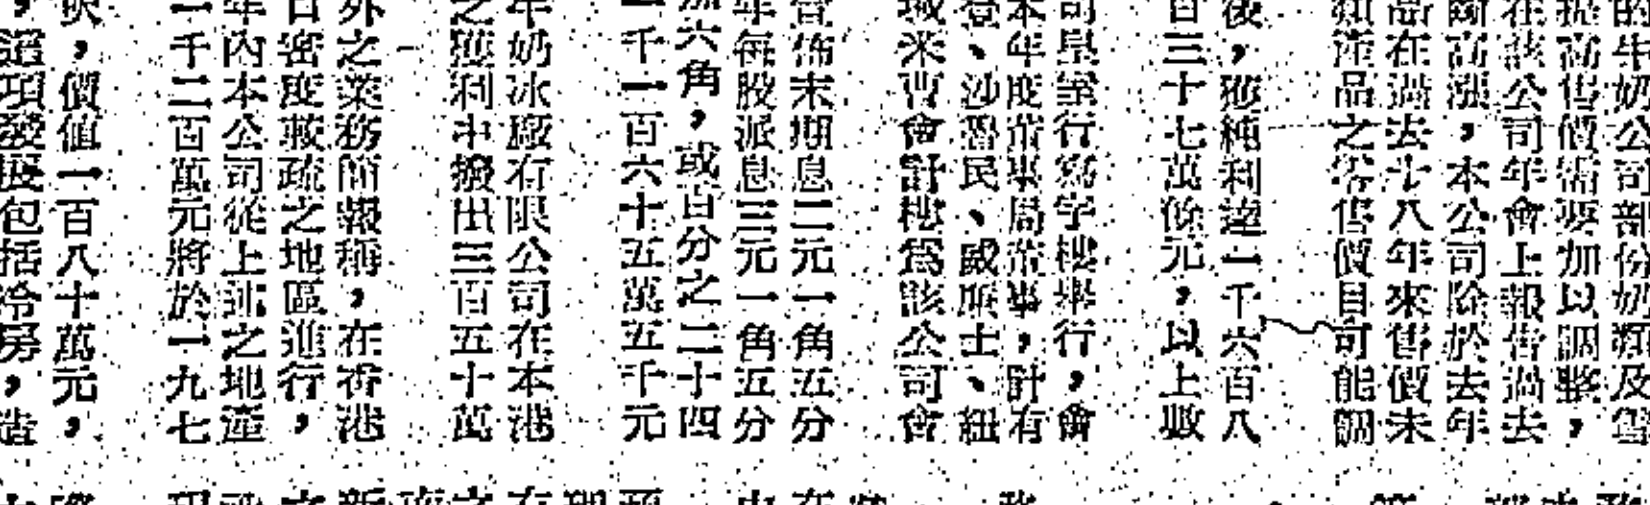 的牛奶公司部份奶類及雪
提高售價需要加以調整，
在該公司年會上報告過去
斷高漲，本公司除於去年
品在過去十八年來售價未
類產品之零售價目可能調
後，獲純利達一千六百八
百三十七萬餘元，以上數
司皇室行寫字樓舉行，會
本年度董事局董事，計有
登、沙魯民、威廉士、紐
域米曹會計樓為該公司會
佈末期息二元一角五分
年每股派息三元一角五分
加六角，或百分之二十四
一千一百六十五萬五千元
牛奶冰廠有限公司在本港
之獲利中撥出三百五十萬
外之業務簡報稱，在香港
口密度較疏之地區進行，
年內本公司從上述之地產
一千二百萬元將於一九七
，價值一百八十萬元，
，這項發展包括冷房，造